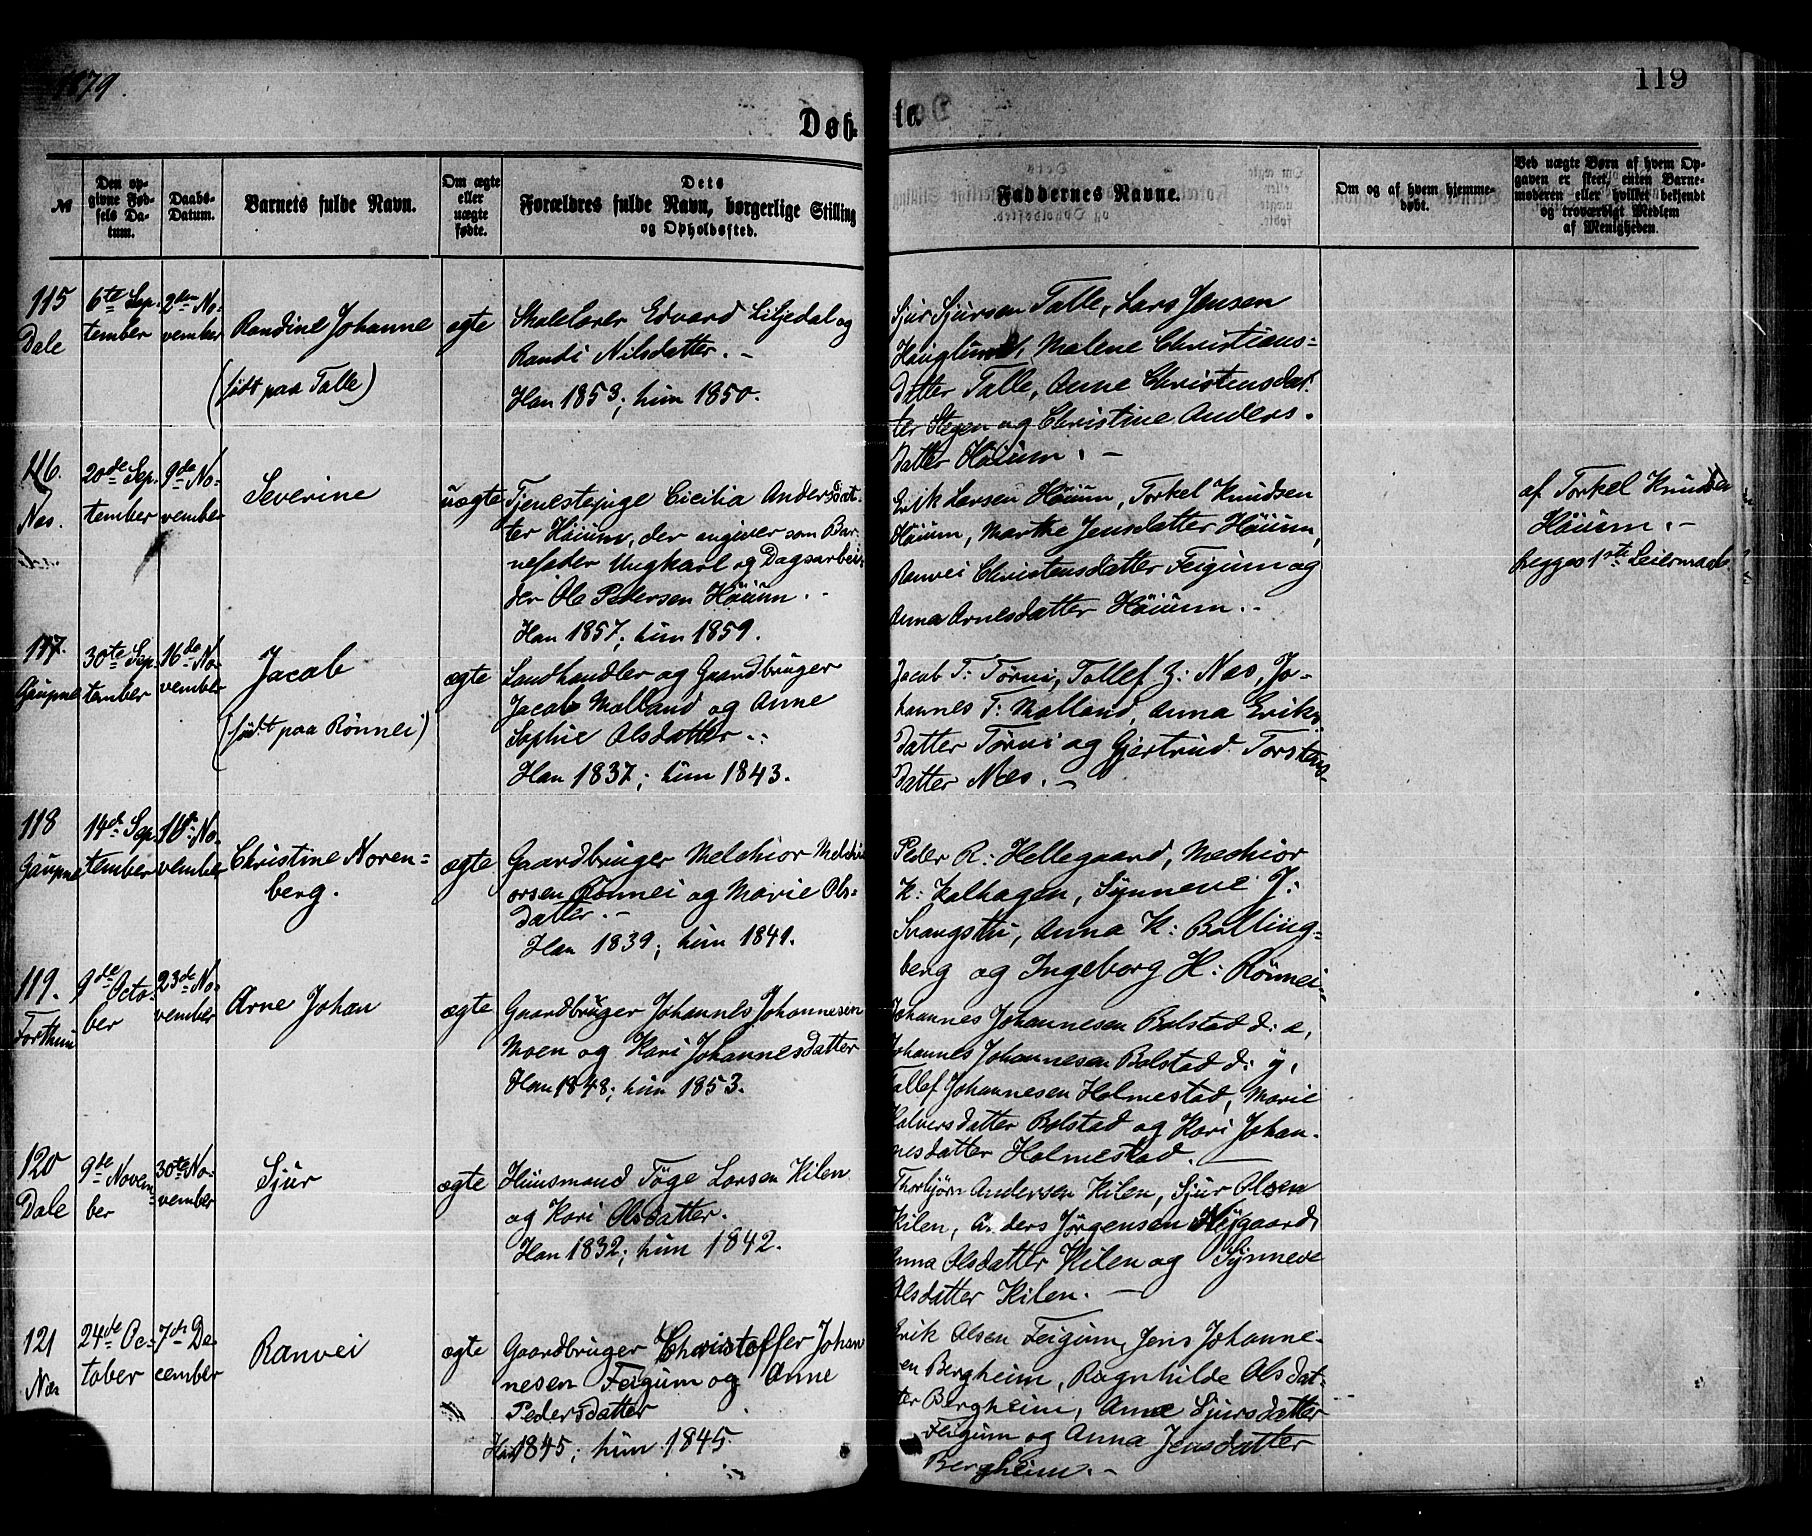 1879.
119
Døb-
te
№
Den op-
givne Fød-
sels Da-
tum.
Daabs-
Datum.
Barnets fulde Navn.
Om ægte
eller
uægte
fødte.
Dets
Forældres fulde Navn, borgerlige Stilling
og Opholdssted.
Faddernes Navne.
Om og af hvem hjemme-
døbt.
Ved uægte Børn af hvem Op-
gaven er skeet, enten Barne-
moderen eller hvilket bekjendt
og troværdigt Medlem
af Menigheden.
115
Dale
6te Sep-
tember
2den No-
vember
Randine Johanne
(født paa Talle)
ægte
Skolelærer Edvard Liljedal og
Randi Nilsdatter. -
Han 1853; hun 1850.
Sjur Sjursen Talle, Lars Jensen
Hauglum, Malene Christians-
datter Talle, Anne Christensdat-
ter Stegen og Christine Anders-
datter Høium. -
116.
Nes.
20de Sep-
tember
9de No-
vember
Severine
uægte
Tjenestepige Cicilia Andersdat-
ter Høium, der angiver som Bar-
nefader Ungkarl og Dagsarbei-
der Ole Pedersen Høium. -
Han 1857; hun 1859.
Erik Larsen Høium, Torkel Knudsen
Høium, Marthe Jensdatter Høium,
Ranvei Christensdatter Feigum og
Anna Arnesdatter Høium. -
af Torkel Knudsen
Høium. -
begges 1ste Leiermaal.
117.
Gaupne
30te Sep-
tember
16de No-
vember
Jacob
(født paa Rønnei)
ægte
Landhandler og Gaardbruger
Jacob Molland og Anne
Sophie Olsdatter. -
Han 1837; hun 1843.
Jacob T: Tørvi, Tollef Z: Nes, Jo-
hannes T: Molland, Anna Eriks-
datter Tørvi og Gjertrud Torstens-
datter Nes. -
118
Gaupne
14de Sep-
tember
16de No-
vember
Christine Noren-
berg.
ægte
Gaardbruger Melchior Melchi-
orsen Rønnei og Marie Ols-
datter. -
Han 1839; hun 1841.
Peder R: Hellegaard, Mechior
K: Kalhagen, Synneve J:
Svangstu, Anna K: Bolling-
berg og Ingeborg H: Rønnei.-
119.
Forthun
9de Octo-
ber
23de No-
vember
Arne Johan
ægte
Gaardbruger Johannes Johannesen
Moen og Kari Johannesdatter
Han 1848; hun 1853.
Johannes Johannesen Bolstad d: æ,
Johannes Johannesen Bolstad d: y,
Tollef Johannesen Holmestad, Marie
Halversdatter Bolstad og Kari Johan-
nesdatter Holmestad. -
120
Dale
9de Novem-
ber
30te No-
vember
Sjur
ægte
Huusmand Tøge Larsen Kilen
og Kari Olsdatter.
Han 1832; hun 1842.
Thorbjørn Andersen Kilen, Sjur Olsen
Kilen, Anders Jørgensen Nygaard,
Anna Olsdatter Kilen og Synneve
Olsdatter Kilen. -
121
Nes
24de Oc-
tober
7de De-
cember
Ranvei
ægte
Gaardbruger Christoffer Johan-
nesen Feigum og Anne
Pedersdatter
Han 1845; hun 1845.
Erik Olsen Feigum, Jens Johanne-
sen Bergheim, Ragnhilde Olsdat-
ter Bergheim, Anne Sjursdatter
Feigum og Anna Jensdatter
Bergheim. -